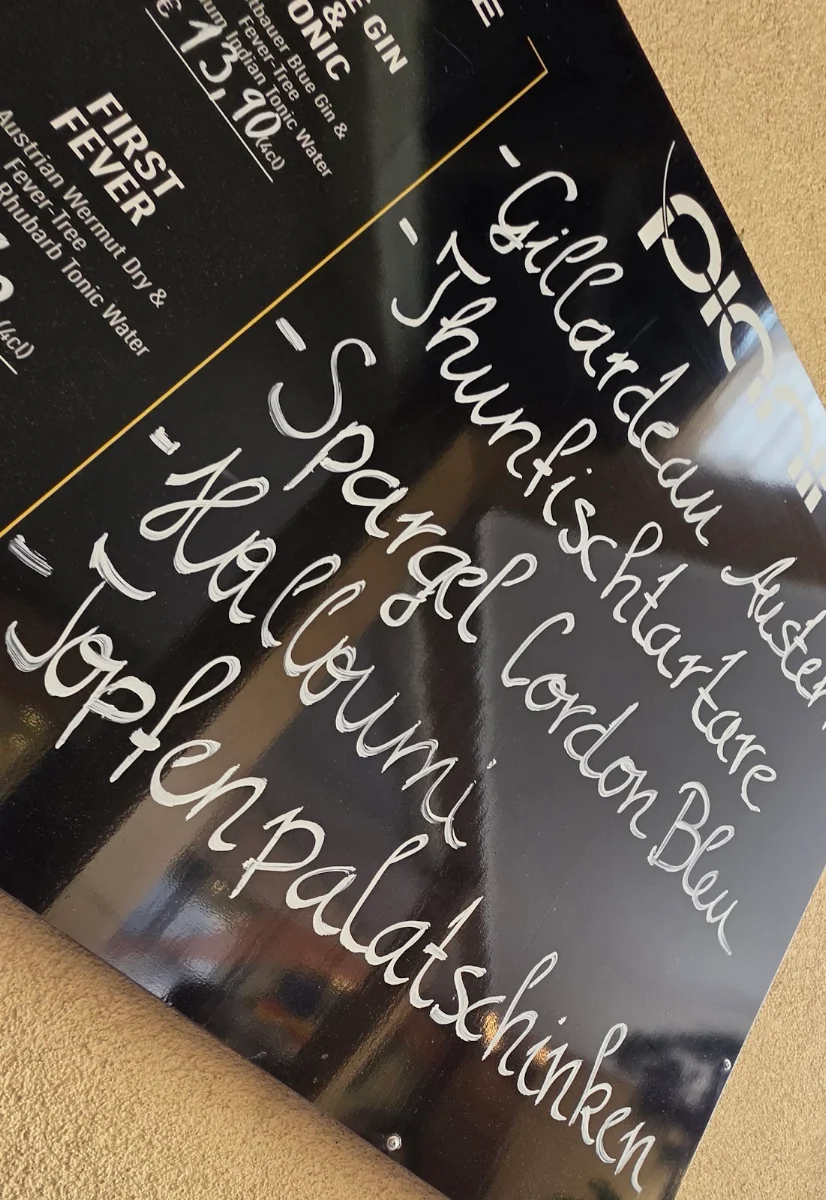 E GIN
&
ONIC
tbauer Blue Gin &
Fever-Tree
ium Indian Tonic Water
€ 13,90 (4cl)
FIRST
FEVER
Austrian Wermut Dry &
Fever-Tree
Rhubarb Tonic Water
(4cl)
- Gillardeau Auster
- Thunfischtartare
- Spargel Cordon Bleu
- Halloumi
- Topfenpalatschinken